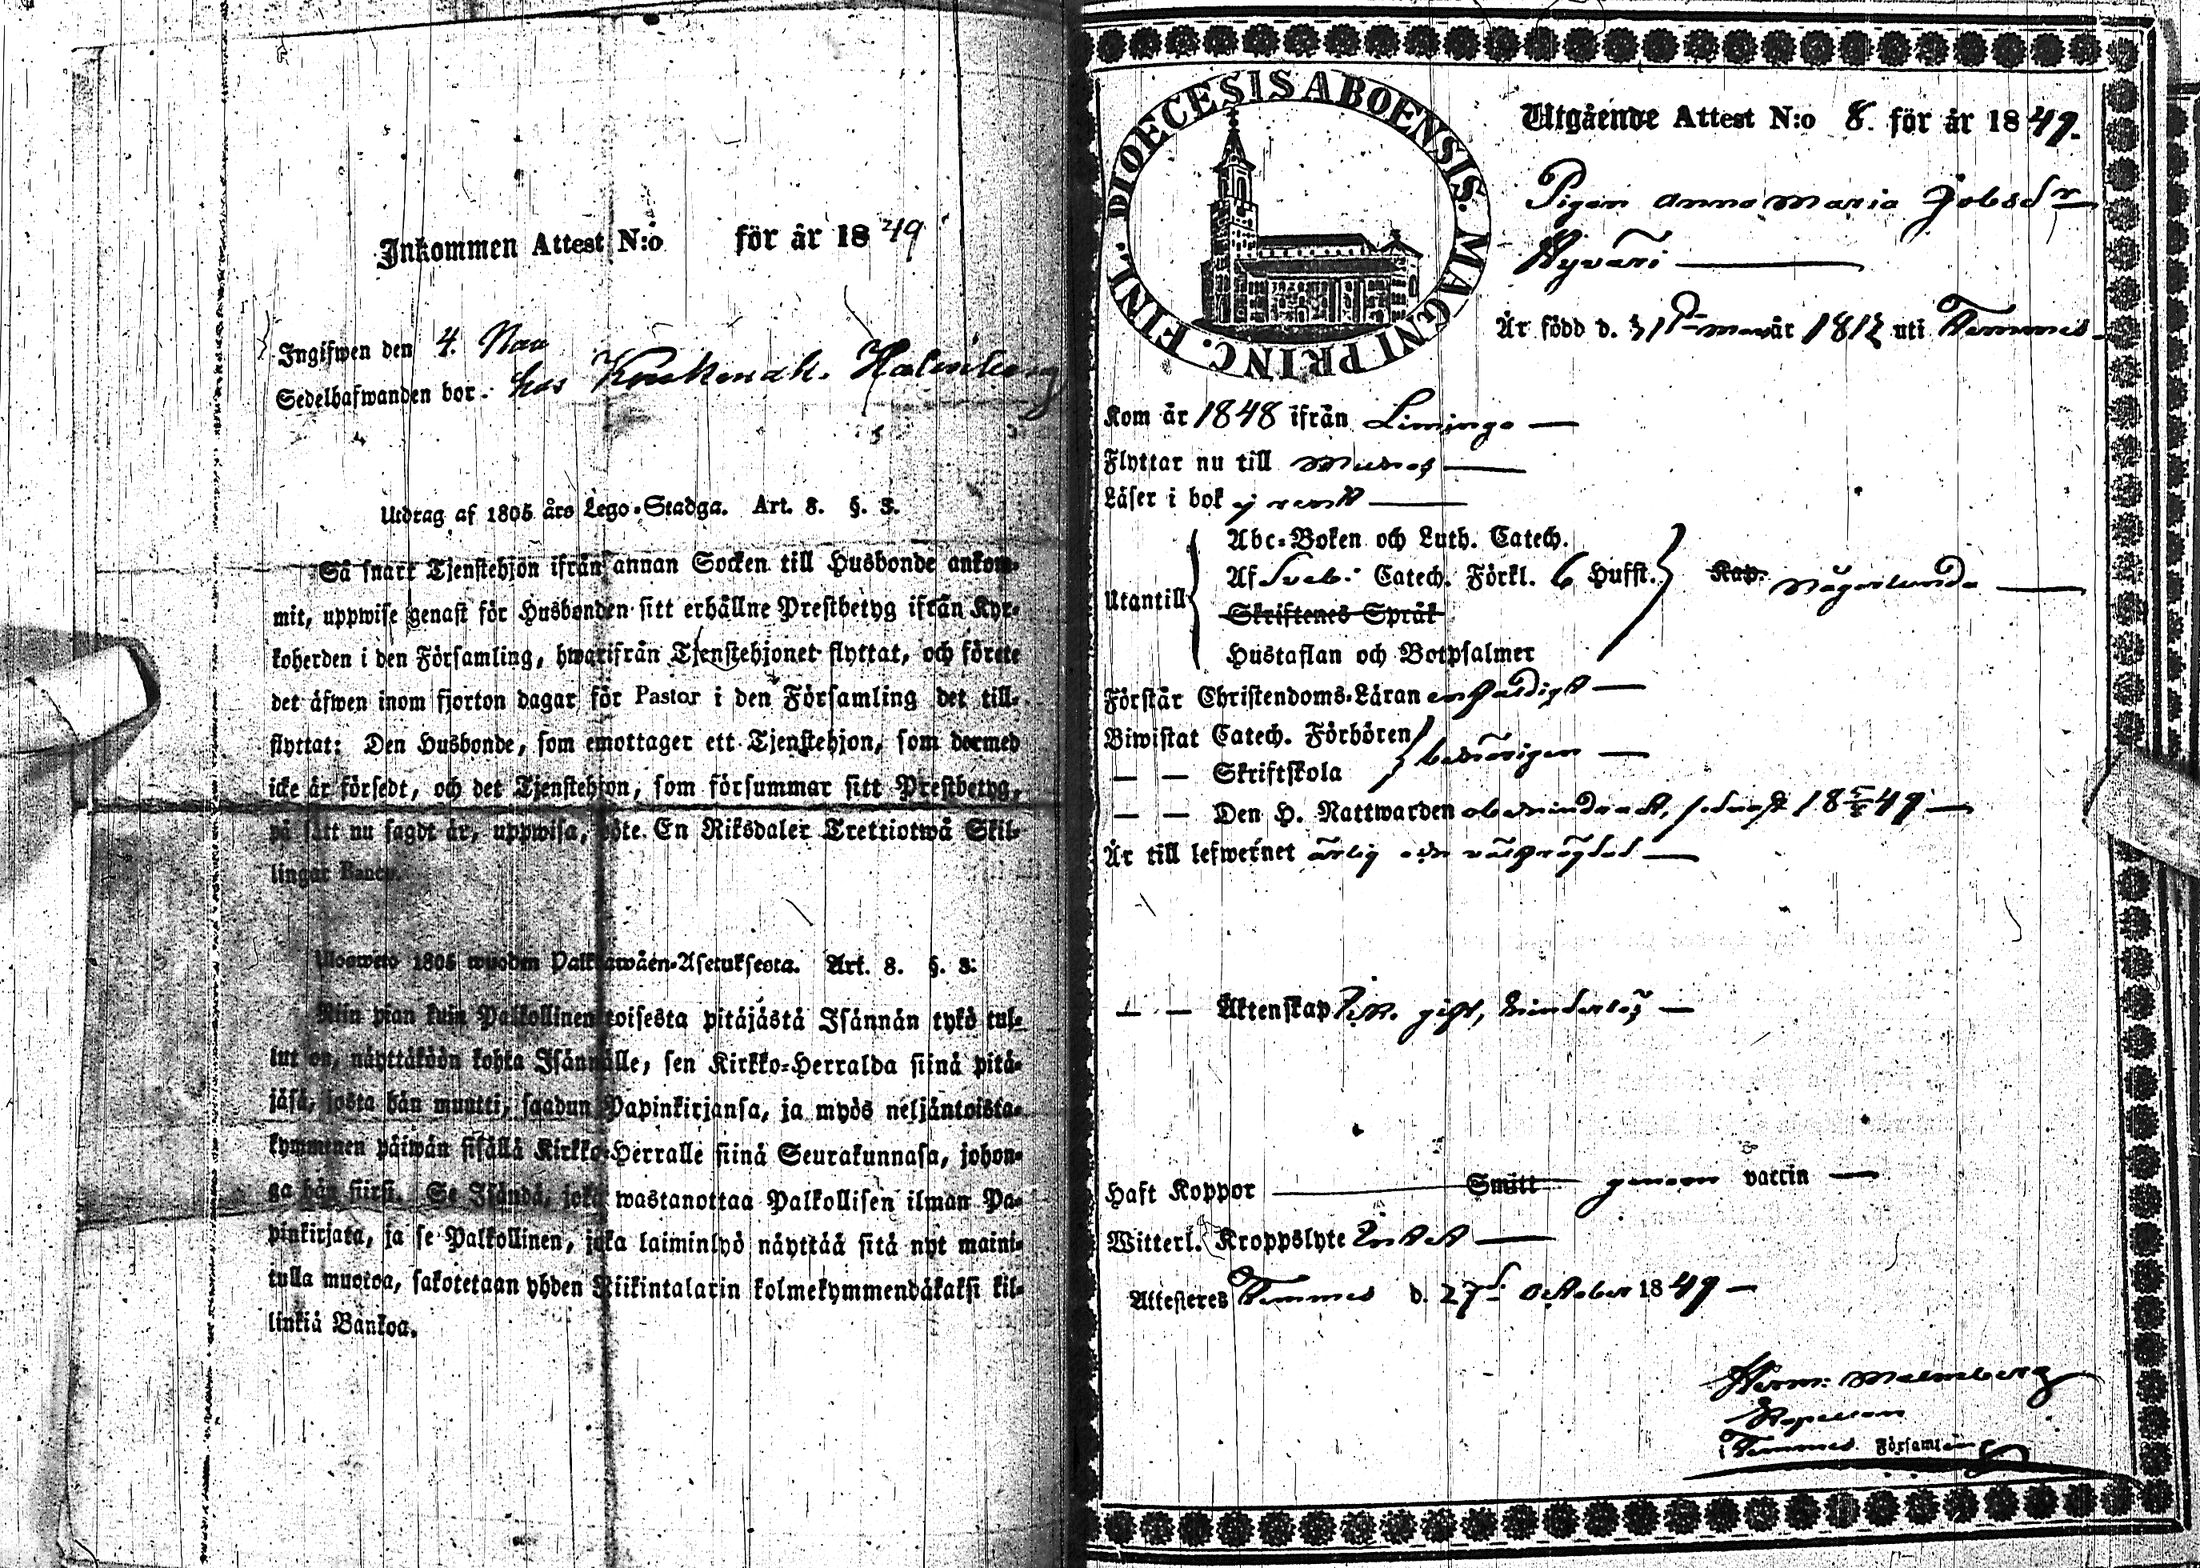 Inkommen Attest N:o för år 1849
Ingifwen den 4. Nov
Sedelhafwanden bor. hos Malmberg
Utdrag af 1805 års Lego-Stadga. Art. 8. §. 3.
Så snart Tjenstehjon ifrån annan Socken till Husbonde ankom-
mit, uppwise genast för Husbonden sitt erhållne Prestbetyg ifrån Kyr-
koherden i den Församling, hwarifrån Tjenstehjonet flyttat, och förete
det äfwen inom fjorton dagar för Pastor i den Församling det till-
flyttat: Den Husbonde, som emottager ett Tjenstehjon, som dermed
icke är försedt, och det Tjenstehjon, som försummar sitt Prestbetyg,
på sätt nu sagdt är, uppwisa, böte En Riksdaler Trettiotwå Skil-
lingar Banco.
Ulosweto 1805 wuoden Palkkawäen-Asetuksesta. Art. 8. §. 3.
Niin pian kuin Palkollinen toisesta pitäjästä Isännän tykö tul-
lut on, näyttäköön kohta Isännälle, sen Kirkko-Herralda siinä pitä-
jäsä, josta hän muutti, saadun Papinkirjansa, ja myös neljäntoista-
kymmenen päiwän sisällä Kirkko-Herralle siinä Seurakunnasa, johon-
ga hän siirsi. Se Isändä, joka wastanottaa Palkollisen ilman Pa-
pinkirjata, ja se Palkollinen, joka laiminlyö näyttää sitä nyt maini-
tulla muotoa, sakotetaan yhden Riikintalarin kolmekymmendäkaksi kil-
linkiä Bankoa.
DIOECESIS ABOENSIS. MAGNI PRINC. FINL.
Utgående Attest N:o 8. för år 1849.
Pigan Anna Maria Jobsdr
Hyväri
Är född d. 31 mars år 1812 uti Temmes
Kom år 1848 ifrån Limingo
Flyttar nu till Muhos
Läser i bok ej rent
Abc-Boken och Luth. Catech.
Utantill Af Sveb. Catech. Förkl. 6 Hufst. Kap. någorlunda
Skriftenes Språk
Hustaflan och Botpsalmer
Förstår Christendoms-Läran enfaldigt
Biwistat Catech. Förhören
— — Skriftskola behörigen
— — Den H. Nattwarden obehindradt, sednast 18 49
Är till lefwernet ärlig och välfrägdad
— — Äktenskap gift, barnlös
Haft Koppor Smitt genom vaccin
Witterl. Kroppslyte Intet
Attesteres Temmes d. 27 October 1849
Herm: Malmberg
Kapellan
i Temmes Församling